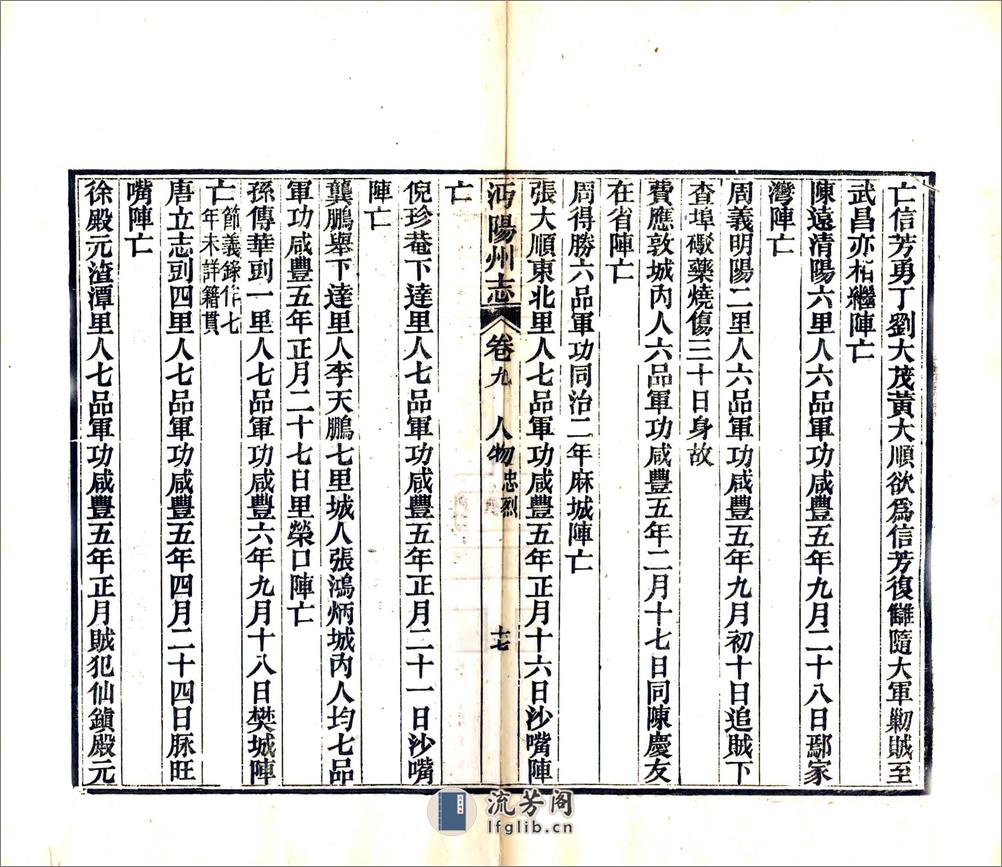 亡信芳勇丁劉大茂黃大順欲爲信芳復讎隨大軍勦賊至
武昌亦相繼陣亡
陳遠清陽六里人六品軍功咸豐五年九月二十八日鄢家
灣陣亡
周義明陽二里人六品軍功咸豐五年九月初十日追賊下
查埠礟藥燒傷三十日身故
費應敦城內人六品軍功咸豐五年二月十七日同陳慶友
在省陣亡
周得勝六品軍功同治二年麻城陣亡
張大順東北里人七品軍功咸豐五年正月十六日沙嘴陣
沔陽州志 卷九 人物 忠烈 十七
亡
倪珍菴下達里人七品軍功咸豐五年正月二十一日沙嘴
陣亡
龔鵬舉下達里人李天鵬七里城人張鴻炳城內人均七品
軍功咸豐五年正月二十七日里榮口陣亡
孫傳華剅一里人七品軍功咸豐六年九月十八日樊城陣
亡 節義錄作七年未詳籍貫
唐立志剅四里人七品軍功咸豐五年四月二十四日脈旺
嘴陣亡
徐殿元渣潭里人七品軍功咸豐五年正月賊犯仙鎮殿元
流芳阁
lfglib.cn